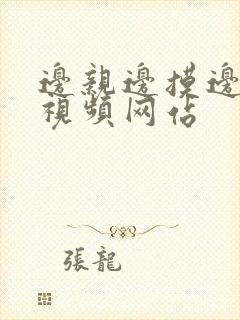 邊親邊摸邊
視頻网站
張龍